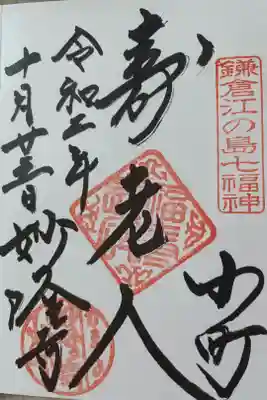 鎌倉江の島七福神
小町
寿老人
令和二年
十月廿三日妙隆寺